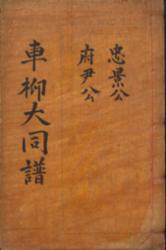 忠景公
府尹公
車柳大同譜